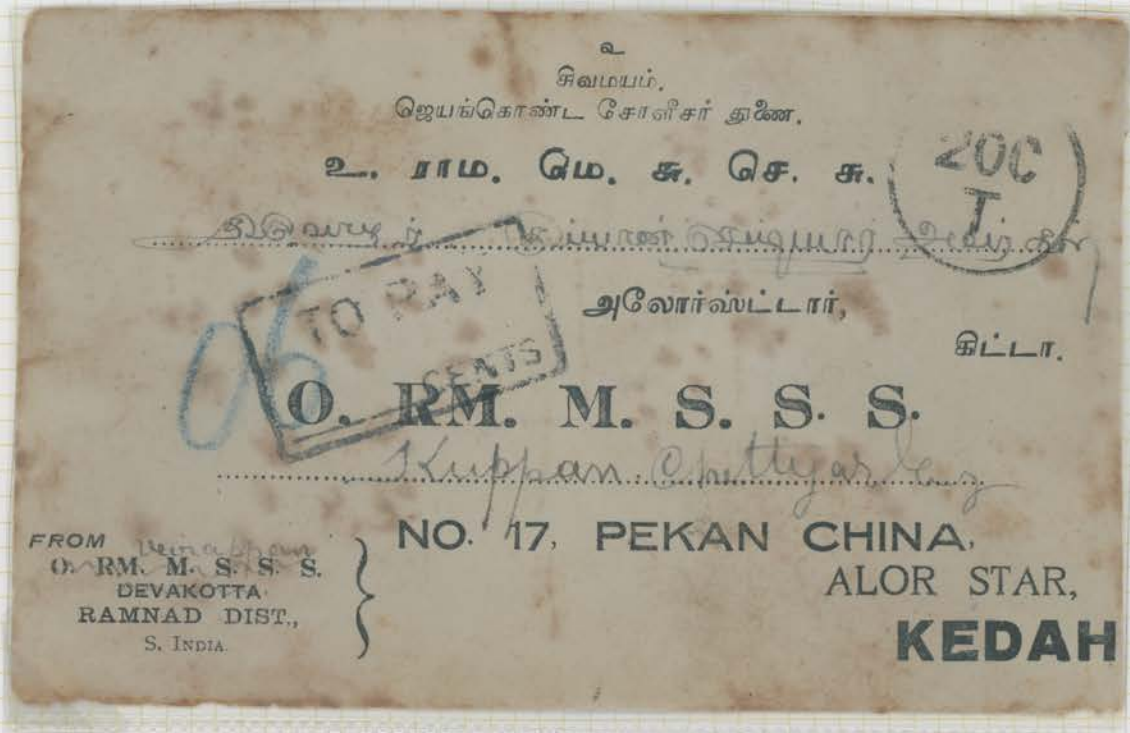 உ
சிவமயம்.
ஜெயங்கொண்ட சோளீசர் துணை.
உ. ராம. மெ. சு. செ. சு.
20C
T
அலோர்ஸ்ட்டார்,
கிட்டா.
TO PAY
CENTS
06
O. RM. M. S. S. S.
Kuppan Chettyar
NO. 17, PEKAN CHINA,
ALOR STAR,
KEDAH
FROM
O. RM. M. S. S. S.
DEVAKOTTA
RAMNAD DIST.,
S. INDIA.